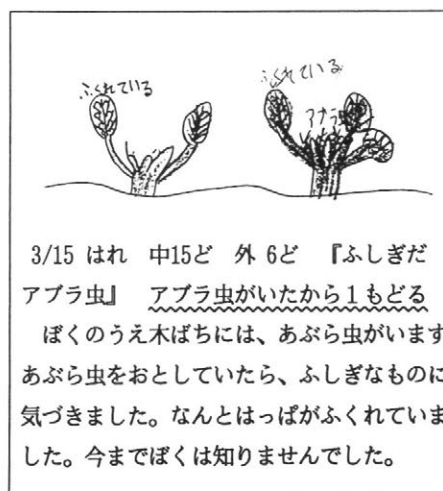 ふくれている
ふくれている
アブラ
3/15 はれ 中15ど 外 6ど 『ふしぎだ
アブラ虫』 アブラ虫がいたから1もどる
ぼくのうえ木ばちには、あぶら虫がいます
あぶら虫をおとしていたら、ふしぎなものに
気づきました。なんとはっぱがふくれていま
した。今までぼくは知りませんでした。